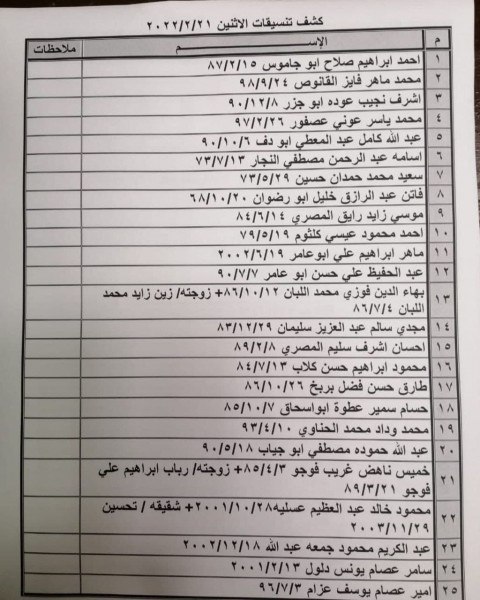 كشف تنسيقات الاثنين ٢٠٢٢/٢/٢١
م الإســـــم ملاحظات
١ احمد ابراهيم صلاح ابو جاموس ٨٧/٢/١٥
٢ محمد ماهر فايز القانوص ٩٨/٩/٢٤
٣ اشرف نجيب عوده ابو جزر ٩٠/١٢/٨
٤ محمد ياسر عوني عصفور ٩٧/٢/٢٦
٥ عبد الله كامل عبد المعطي ابو دف ٩٠/١٠/٦
٦ اسامه عبد الرحمن مصطفي النجار ٧٣/٧/١٣
٧ سعيد محمد حمدان حسين ٧٣/٥/٢٩
٨ فاتن عبد الرازق خليل ابو رضوان ٦٨/١٠/٢٠
٩ موسي زايد رايق المصري ٨٤/٦/١٤
١٠ احمد محمود عيسي كلثوم ٧٩/٥/١٩
١١ ماهر ابراهيم علي ابوعامر ٢٠٠٢/٦/١٩
١٢ عبد الحفيظ علي حسن ابو عامر ٩٠/٧/٧
١٣ بهاء الدين فوزي محمد اللبان ٨٦/١٠/١٢+ زوجته/ زين زايد محمد
اللبان ٨٦/٧/٤
١٤ مجدي سالم عبد العزيز سليمان ٨٣/١٢/٢٩
١٥ احسان اشرف سليم المصري ٨٩/٢/٨
١٦ محمود ابراهيم حسن كلاب ٨٤/٧/١٣
١٧ طارق حسن فضل بربخ ٨٦/١٠/٢٦
١٨ حسام سمير عطوة ابواسحاق ٨٥/١٠/٧
١٩ محمد وداد محمد الحناوي ٩٣/٤/١٠
٢٠ عبد الله حموده مصطفي ابو جياب ٩٠/٥/١٨
٢١ خميس ناهض غريب فوجو ٨٥/٤/٣+ زوجته/ رباب ابراهيم علي
فوجو ٨٩/٣/٢١
٢٢ محمود خالد عبد العظيم عسليه٢٠٠١/١٠/٢٨+ شقيقه / تحسين
٢٠٠٣/١١/٢٩
٢٣ عبد الكريم محمود جمعه عبد الله ٢٠٠٢/١٢/١٨
٢٤ سامر عصام يونس دلول ٢٠٠١/٢/١٣
٢٥ امير عصام يوسف عزام ٩٦/٧/٣